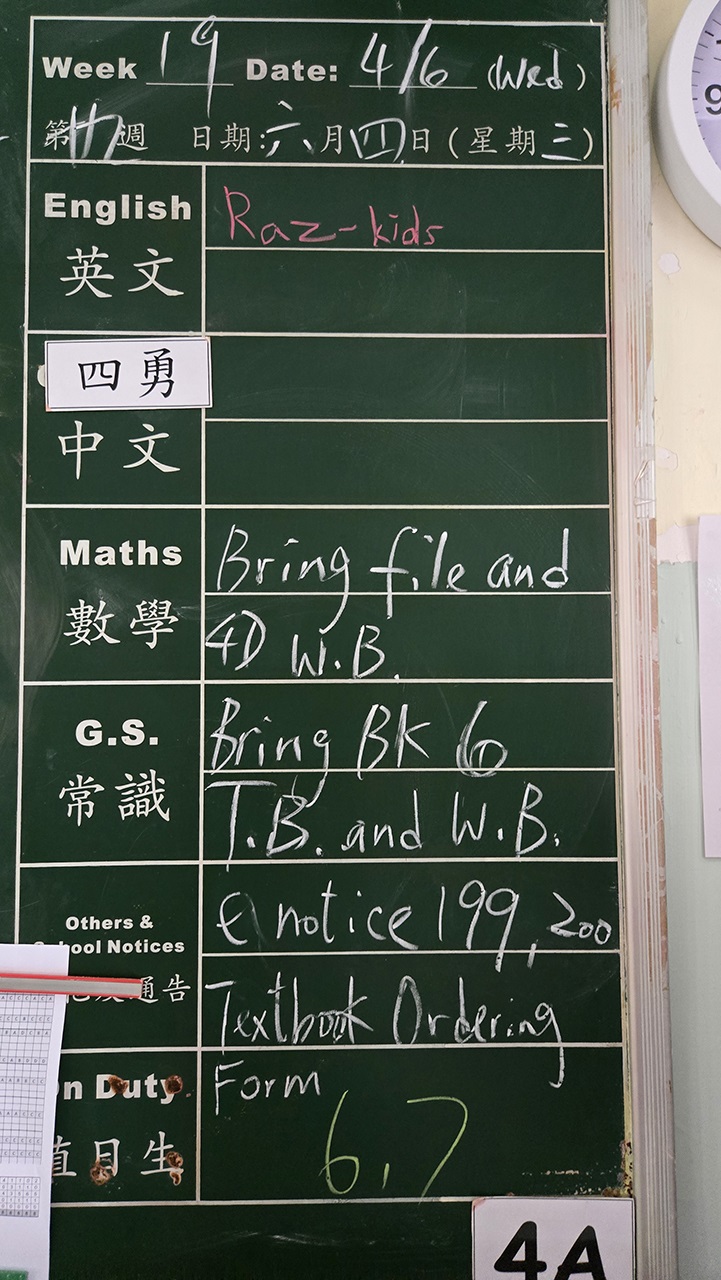 Week 19 Date: 4/6 (Wed)
第十九週 日期:六月四日(星期三)
9
English Raz-kids
英文
四勇
中文
Maths Bring file and
數學 4D W.B.
G.S. Bring BK 6
常識 T.B. and W.B.
Others & e notice 199, 200
School Notices
通告 Textbook Ordering
On Duty Form
值日生 6, 7
4A